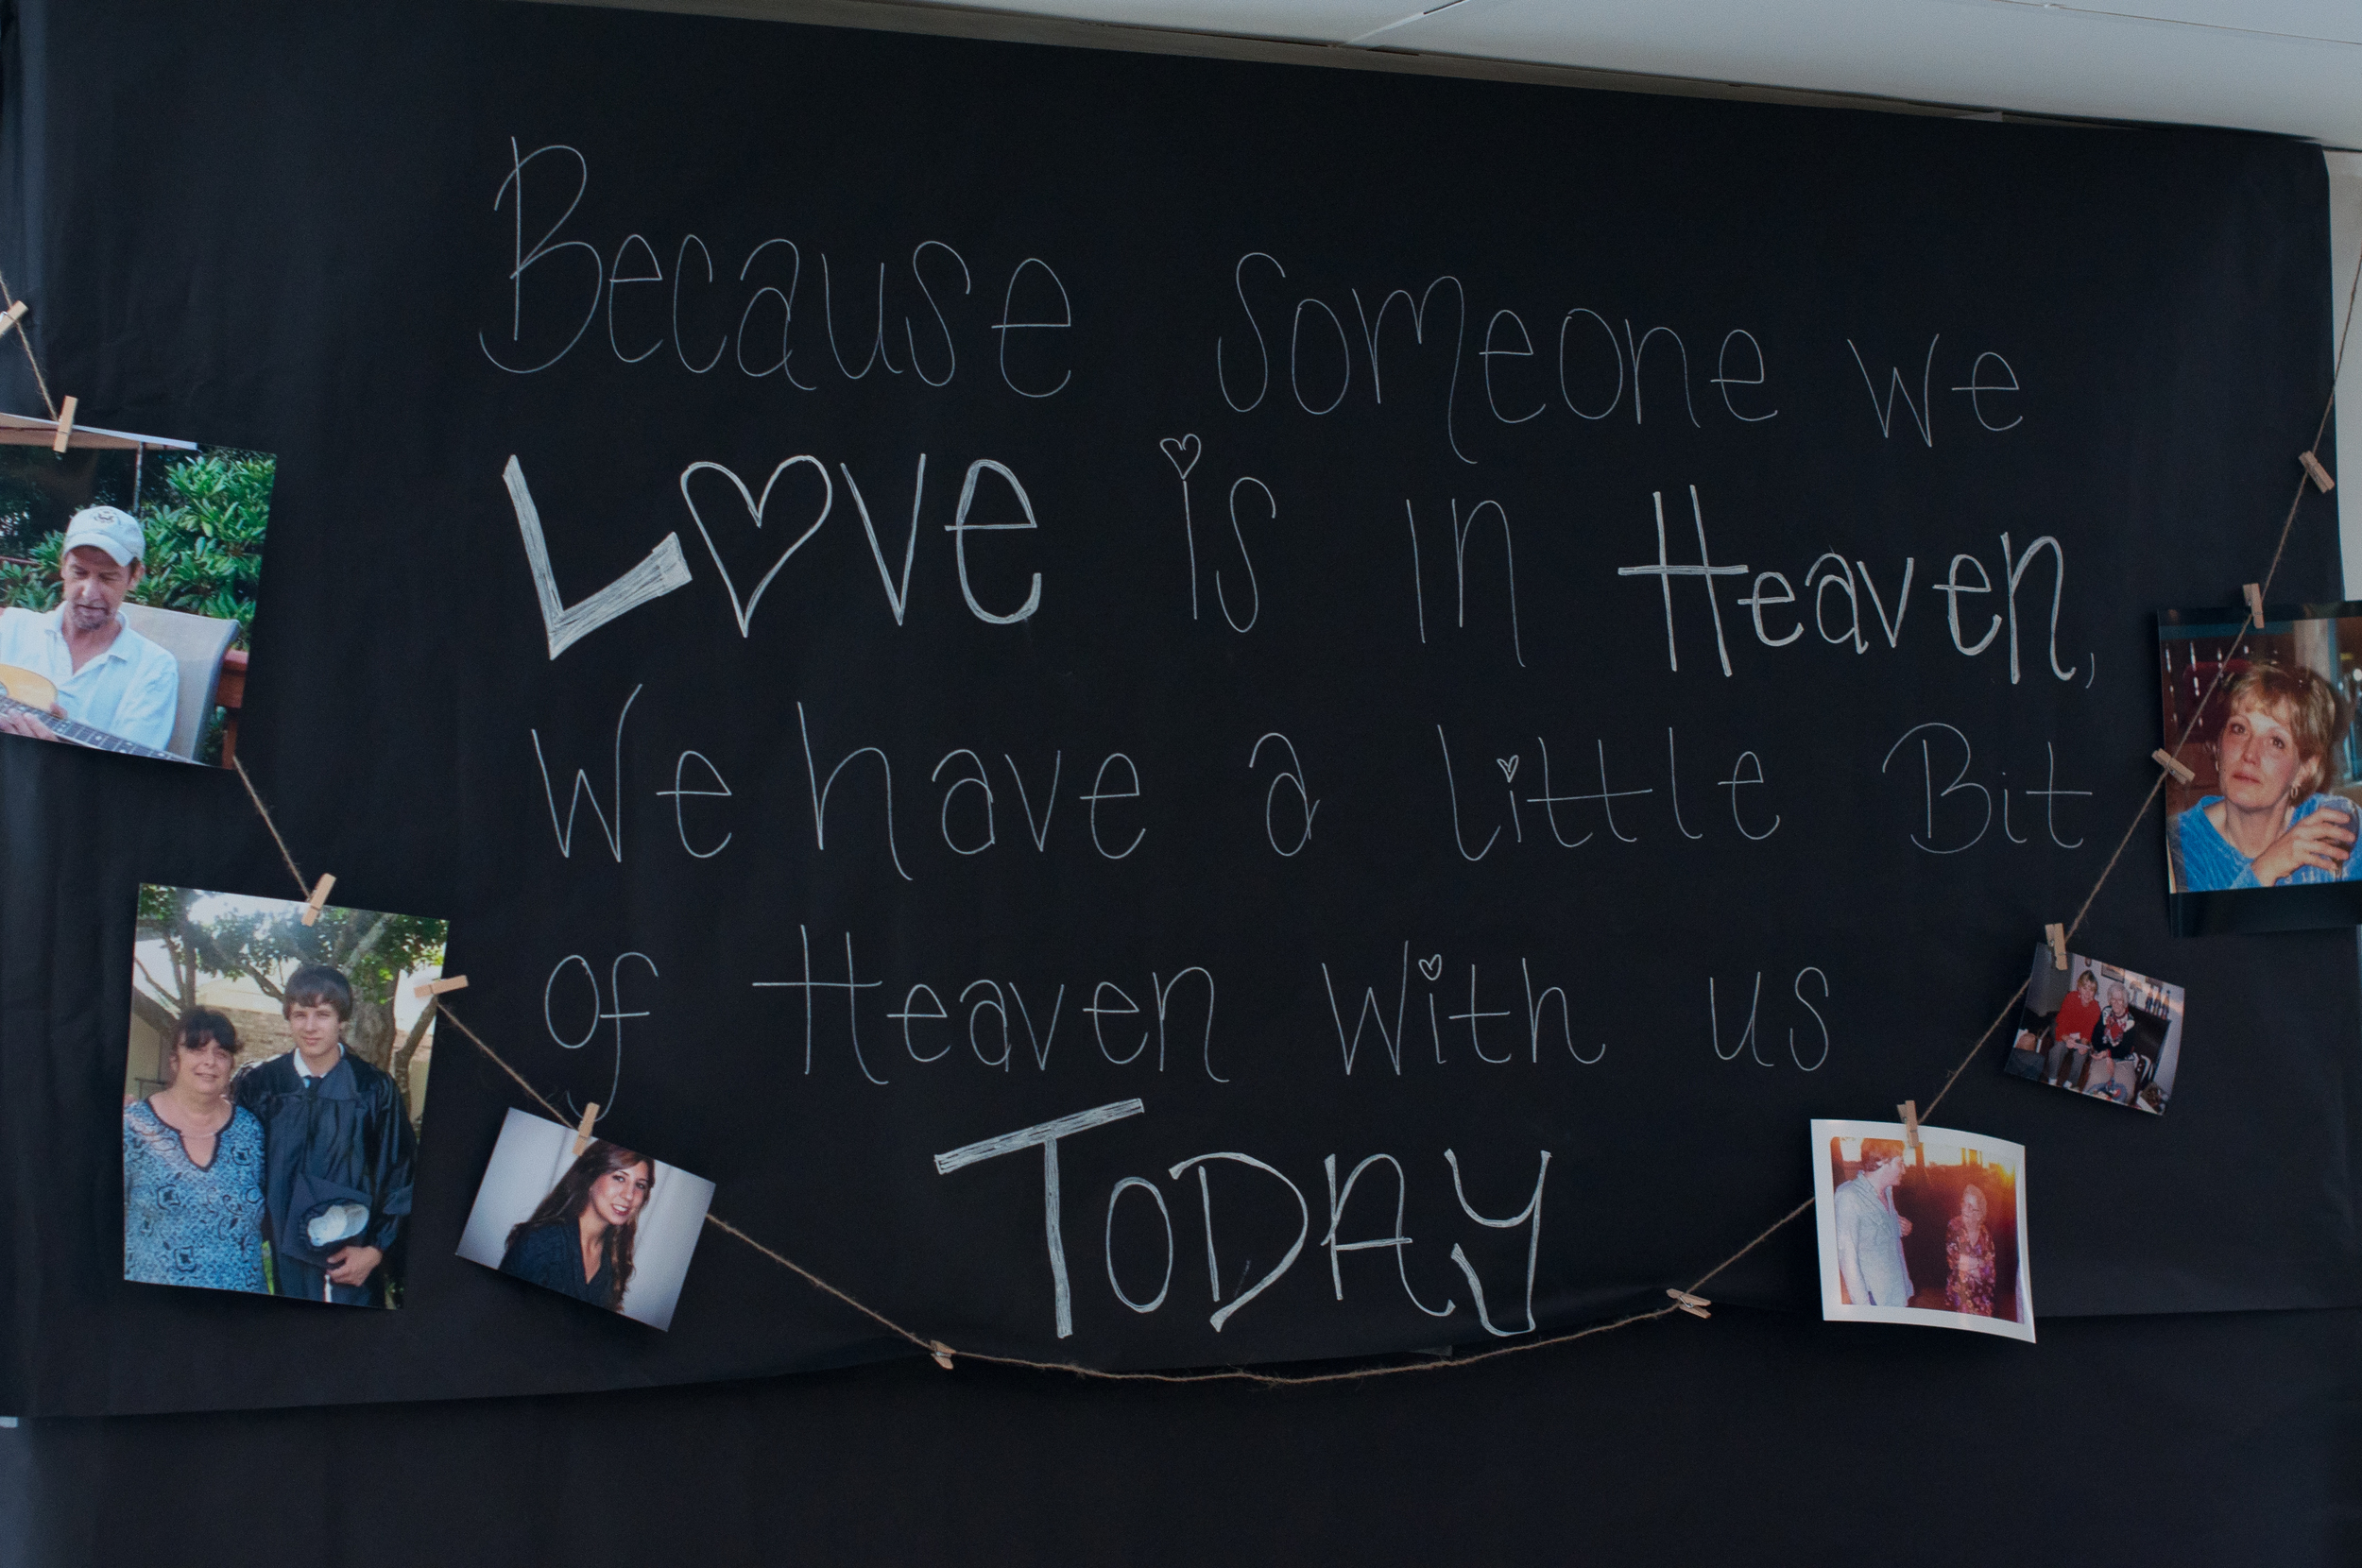 Because someone we
Love is in Heaven,
We have a little Bit
of Heaven with us
TODAY